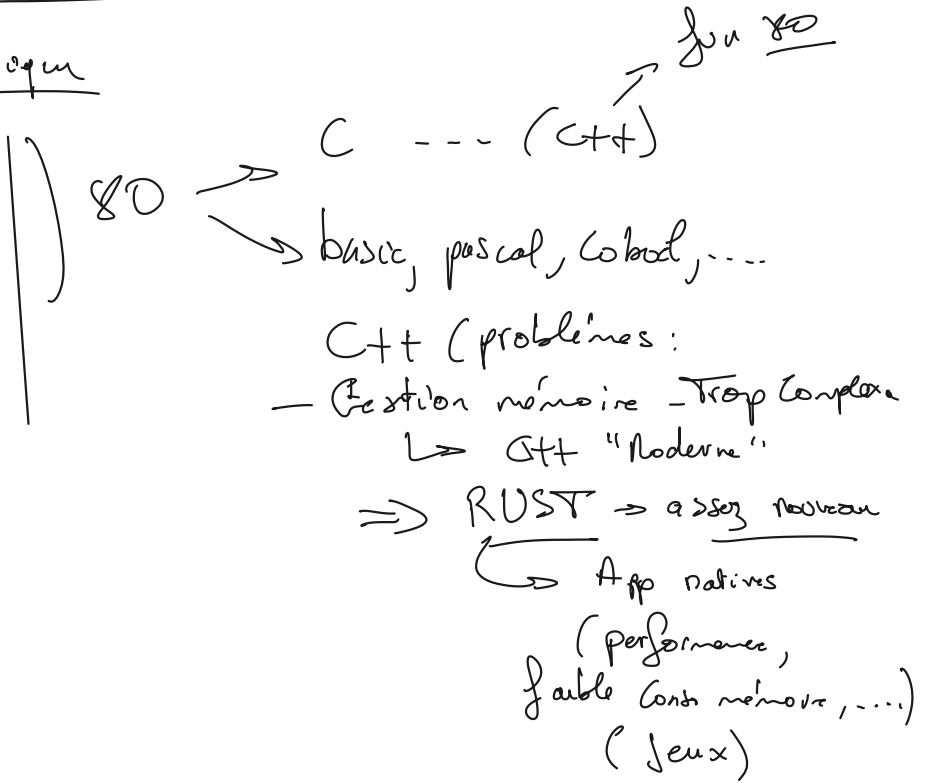 fin 80
C --- (C++)
80
basic, pascal, Cobol, ....
C++ (problèmes :
- Gestion mémoire - Trop Complexe
C++ "Moderne"
⇒ RUST → assez nouveau
App natives
(performance,
faible conso mémoire, ....)
(Jeux)